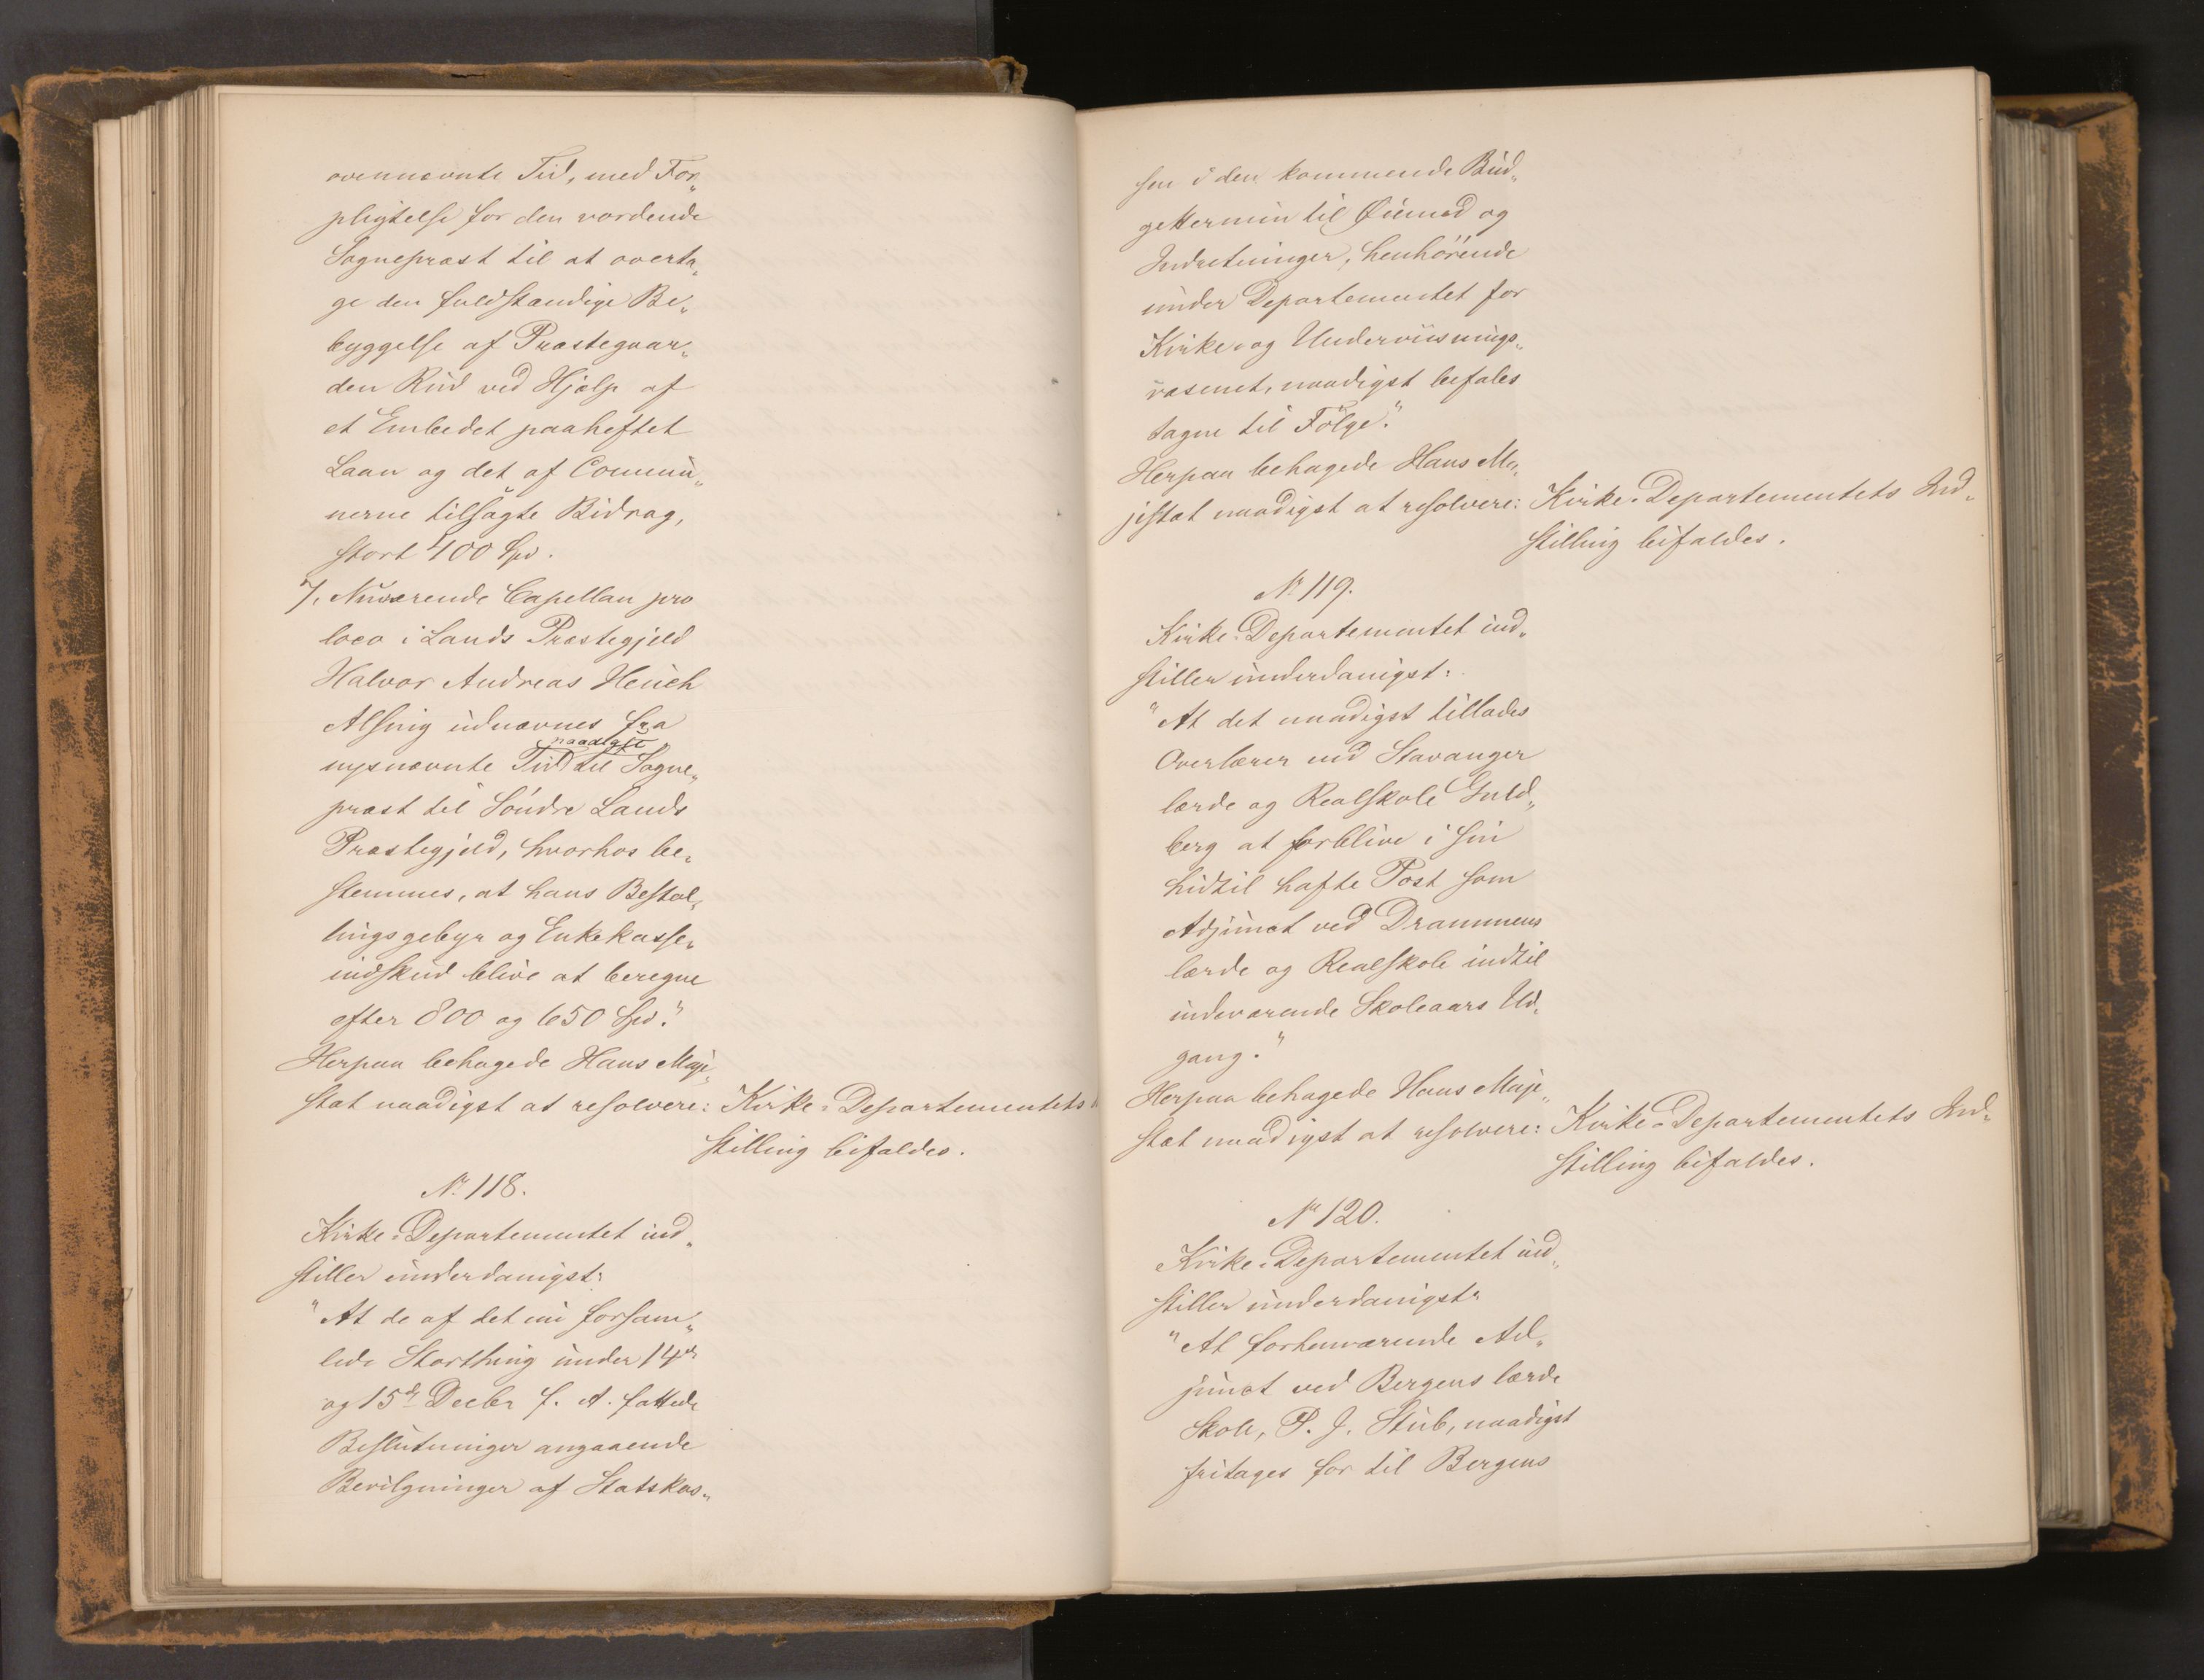 ovennævnte Tid, med For„
pligtelse for den vordende
Sognepræst til at overta„
ge den fuldstændige Be„
byggelse af Præstegaar„
den Rud ved Hjælp af
et Embedet paaheftet
Laan og det af Commu„
nerne tilsagte Bidrag,
stort 400 Spd.
7, Nuværende Capellan pro
loco i Lands Præstegjeld
Halvor Andreas Heuch
Alsing udnævnes fra
naadigst
nysnævnte Tid til Sogne„
præst til Söndre Lands
Præstegjeld, hvorhos be„
stemmes, at hans Bestal„
lingsgebyr og Enkekasse„
indskud blive at beregne
efter 800 og 650 Spd."
Herpaa behagede Hans Maje„
stæt naadigst at resolvere: Kirke-Departementets
stilling bifaldes.
No 118.
Kirke-Departementet ind„
stiller underdanigst:
"At de af det nu forsam„
lede Storthing under 14de
og 15de Decbr f. A. fattede
Beslutninger angaaende
Bevilgninger af Statskas„
sen i den kommende Bud„
gettermin til Øiemed og
Indretninger, henhörende
under Departementet for
Kirke- og Underviisnings„
væsenet, naadigst befales
tagne til Fölge."
Herpaa behagede Hans Ma„
jestæt naadigst at resolvere: Kirke-Departementets Ind„
stilling bifaldes.
No 119.
Kirke-Departementet ind„
stiller underdanigst:
"At det naadigst tillades
Overlærer ved Stavanger
lærde og Realskole Guld„
berg at forblive i sin
hidtil hafte Post som
Adjunct ved Drammens
lærde og Realskole indtil
indeværende Skoleaars Ud„
gang."
Herpaa behagede Hans Maje„
stæt naadigst at resolvere: Kirke-Departementets Ind„
stilling bifaldes.
No 120.
Kirke-Departementet ind„
stiller underdanigst:
"At forhenværende Ad„
junct ved Bergens lærde
Skole, P. J. Stub, naadigst
fritages for til Bergens